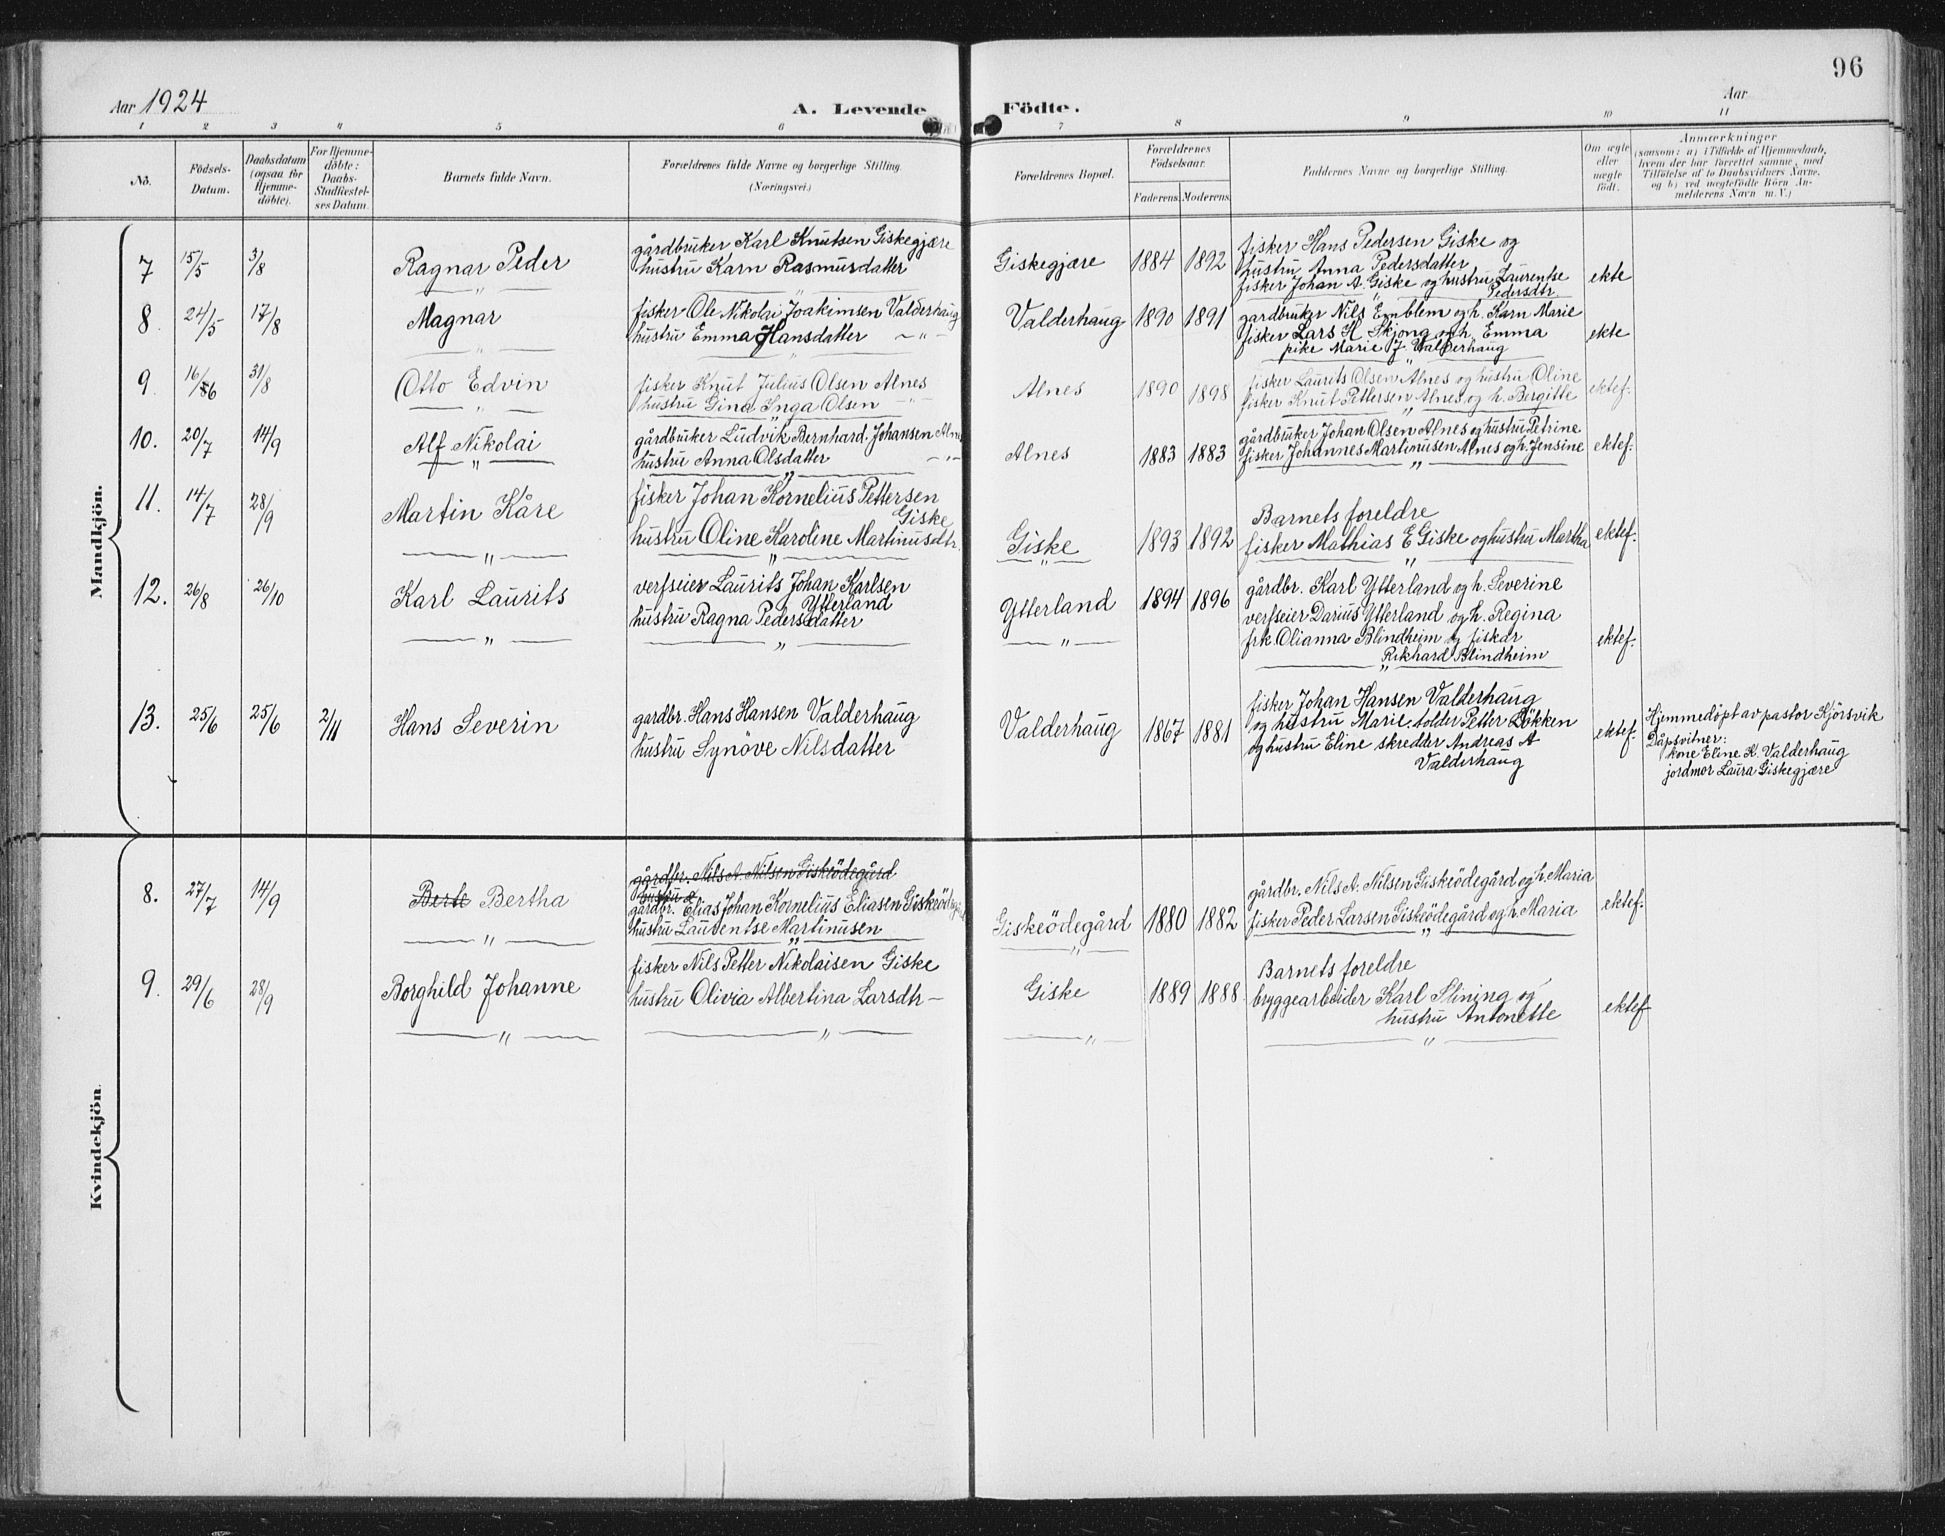 96
Aar 1924
A. Levende Födte.
Aar
1 2 3 4 5 6 7 8 9 10 11
No.
Födsels-Datum.
Daabsdatum (ogsaa for Hjemme-döbte).
For Hjemme-döbte: Daabs-Stadfæstel-ses Datum.
Barnets fulde Navn.
Forældrenes fulde Navne og borgerlige Stilling.
(Næringsvei.)
Forældrenes Bopæl.
Forældrenes Födselsaar.
Faderens. Moderens.
Faddernes Navne og borgerlige Stilling.
Om ægte eller uægte födt.
Anmærkninger
(saasom: a) i Tilfælde af Hjemmedaab,
hvem der har forrettet samme, med
Tilföielse af to Daabsvidners Navne,
og b) ved uægtefödte Börn An-
melderens Navn m. V.)
Mandkjön.
7 15/5 3/8 Ragnar Peder
gårdbruker Karl Knutsen Giskegjære
hustru Karn Rasmusdatter
Giskegjære 1884 1892
fisker Hans Pedersen Giske og
hustru Anna Pedersdatter
fisker Johan A. Giske og hustru Laurentse
Pedersdtr
ekte
8. 24/5 17/8 Magnar
fisker Ole Nikolai Joakimsen Valderhaug
hustru Emma Hansdatter — " —
Valderhaug 1890 1891
gardbruker Nils Emblem og h. Karn Marie
fisker Lars H. Skjong og h. Emma
pike Marie J. Valderhaug
ekte
9. 16/6 31/8 Otto Edvin
fisker Knut Julius Olsen Alnes
hustru Gina Inga Olsen — " —
Alnes 1890 1898
fisker Laurits Olsen Alnes og hustru Oline
fisker Knut Pettersen Alnes og h. Bergitte
ektef.
10. 20/7 14/9 Alf Nikolai
gårdbruker Ludvik Bernhard Johansen Alnes
hustru Anna Olsdatter — " —
Alnes 1883 1883
gårdbruker Johan Olsen Alnes og hustru Petrine
fisker Johannes Martinusen Alnes og h. Jensine
ektef.
11. 14/7 28/9 Martin Kåre
fisker Johan Kornelius Pettersen
Giske
hustru Oline Karoline Martinusdtr.
Giske 1893 1892
Barnets foreldre
fisker Mathias E Giske og hustru Martha
ektef.
12. 26/8 26/10 Karl Laurits
verfseier Laurits Johan Karlsen
Ytterland
hustru Ragna Pedersdatter
Ytterland 1894 1896
gårdbr. Karl Ytterland og h. Severine
verfseier Darius Ytterland og h. Regina
frk. Olianna Blindheim og fisker
Rikhard Blindheim
ektef.
13. 25/6 25/6 2/11 Hans Severin
gardbr. Hans Hansen Valderhaug
hustru Synöve Nilsdatter
Valderhaug 1867 1881
fisker Johan Hansen Valderhaug
og hustru Marie, tolder Petter Lökken
og hustru Eline skredder Andreas A
Valderhaug
ektef.
Hjemmedöpt av pastor Kjörsvik
Dåpsvitner:
kone Eline K. Valderhaug
jordmor Laura Giskegjære
Kvindekjön
8. 27/7 14/9 Berte Bertha
gårdbr. Nils A. Nilsen Giskeödegård
hustru
gårdbr. Elias Johan Kornelius Eliasen Giskeödegård
hustru Laurentse Martinusen
Giskeödegård 1880 1882
gårdbr. Nils A. Nilsen Giskeödegård og h. Maria
fisker Peder Larsen Giskeödegård og h. Maria
ektef.
9. 29/6 28/9 Borghild Johanne
fisker Nils Petter Nikolaisen Giske
hustru Olivia Albertina Larsdtr —
Giske 1889 1888
Barnets foreldre
bryggearbeider Karl Slining og
hustru Antonette
ektef